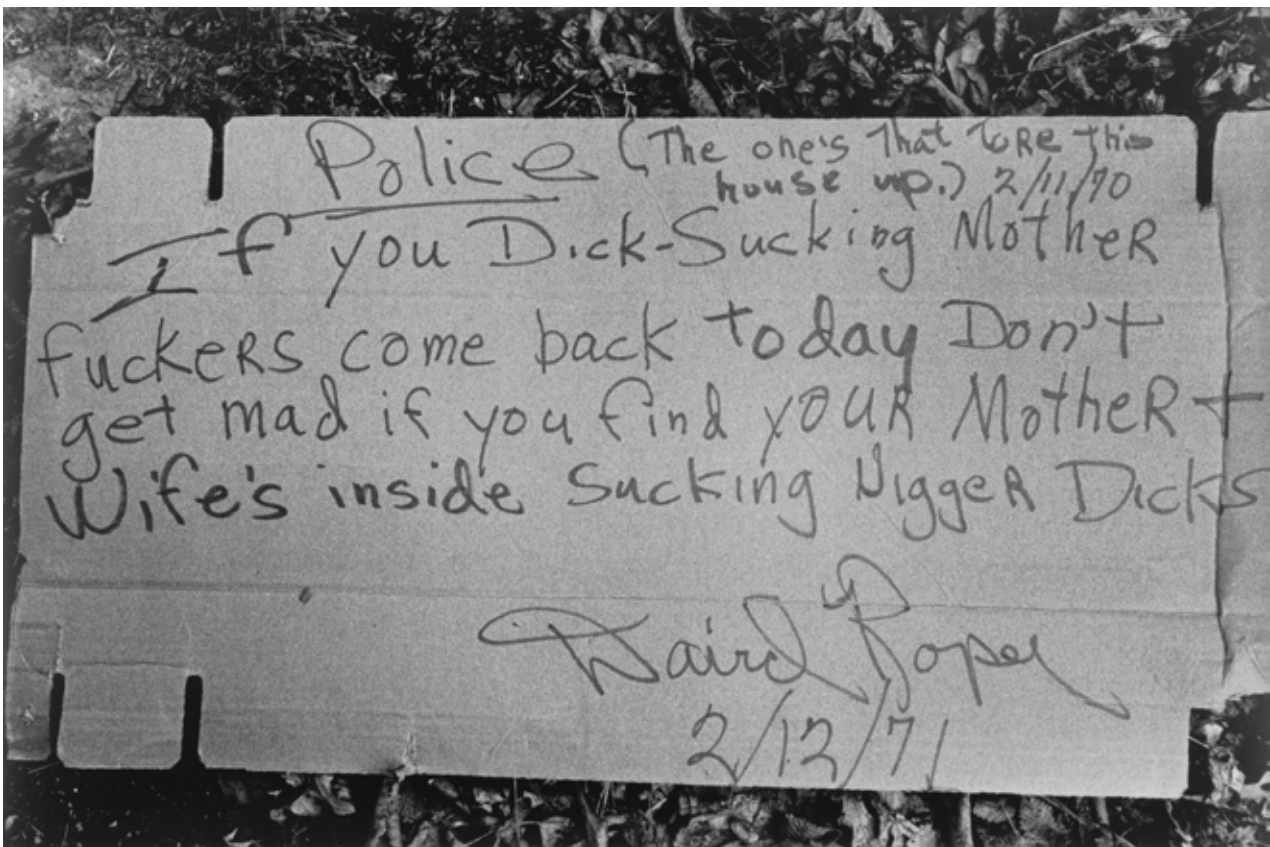 Police (The one's That ToRe this
house up.) 2/11/70
If you Dick-Sucking MotheR
fuckeRS come back today Don't
get mad if you find youR MotheR +
Wife's inside Sucking NiggeR Dicks
David Roper
2/12/71